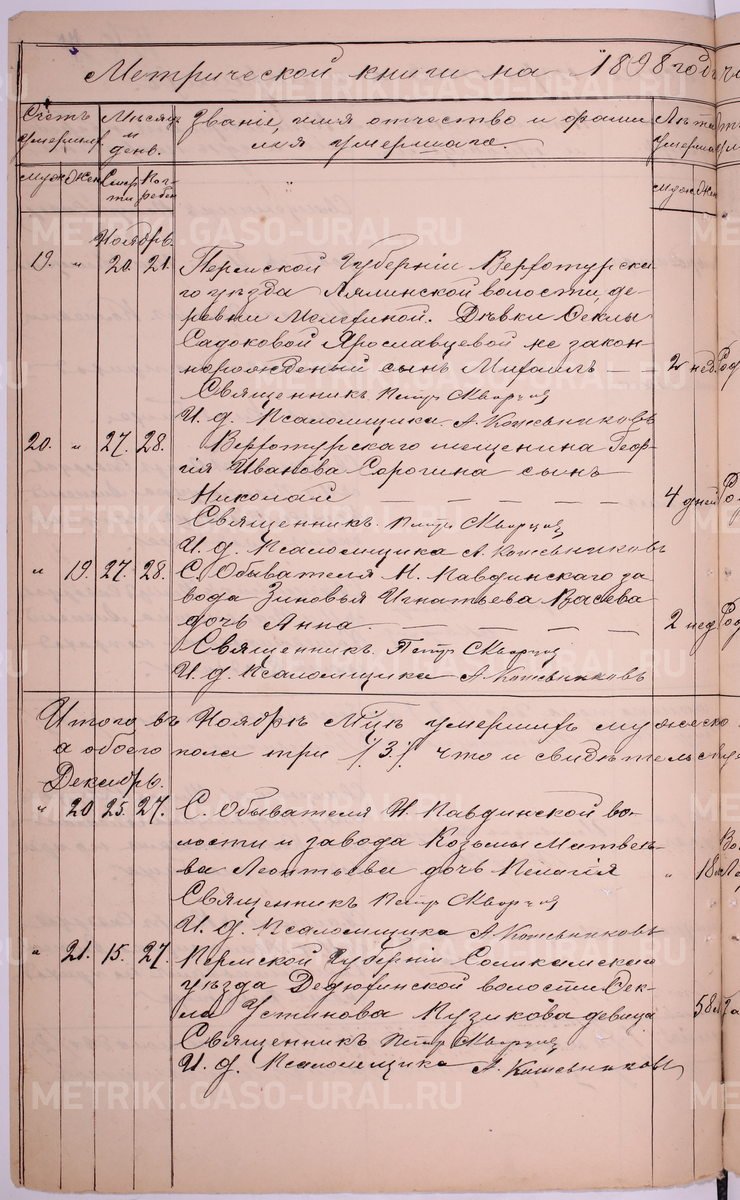 Метрической книги на 1898 годъ
Счетъ умершихъ Мѣсяцъ и день. Званіе, имя отчество и фами Лѣта умерша
лія умершаго.
муж. жен. Смер ти Пог ребен муж. жен
Ноябрь
19. " 20. 21. Пермской Губерніи Верхотурска
го уѣзда Лялинской волости, де
ревни Мелехиной. Дѣвки Феклы
Садоковой Ярославцевой не закон
норожденый сынъ Михаилъ — 2 нед. Род
Священникъ Петръ Скворцов
И. д. Псаломщика А. Кожевниковъ
20. " 27. 28. Верхотурскаго мещенина Геор
гія Иванова Сорогина сынъ
Николай — — — — — 4 дней Ро
Священникъ. Петръ Скворцов
И. д. Псаломщика А. Кожевниковъ
" 19. 27. 28. С. Обывателя Н. Павдинскаго за
вода Зиновья Игнатьева Васева
дочь Анна. — — — — 2 нед. Род
Священникъ. Петръ Скворцов
И. д. Псаломщика А. Кожевниковъ
Итого въ Ноябрѣ м̃цѣ умершихъ мужеско
а обоего пола три /3/ что и свидѣтельству
Декабрь.
" 20 25. 27. С. Обывателя Н. Павдинской во
лости и завода Козьмы Матвѣе
ва Леонтьева дочь Пелагія " 18
Священникъ Петръ Скворцов
И. д. Псаломщика А. Кожевниковъ
" 21. 15. 27. Пермской Губерніи Соликамскаго
уѣзда Дедюхинской волости Фек
ла Устинова Кузикова девица 58
Священникъ Петръ Скворцов
И. д. Псаломщика А. Кожевниковъ
METRIKI.GASO-URAL.RU